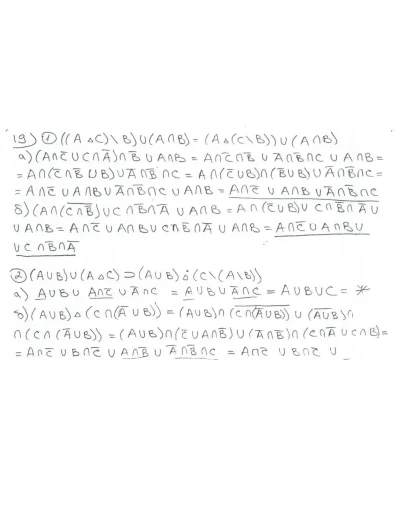 19) ① ((A △ C) \ B) ∪ (A ∩ B) = (A △ (C \ B)) ∪ (A ∩ B)
а) (A ∩ C̅ ∪ C ∩ A̅) ∩ B̅ ∪ A ∩ B = A ∩ C̅ ∩ B̅ ∪ A̅ ∩ B̅ ∩ C ∪ A ∩ B =
= A ∩ (C̅ ∩ B̅ ∪ B) ∪ A̅ ∩ B̅ ∩ C = A ∩ (C̅ ∪ B) ∩ (B̅ ∪ B) ∪ A̅ ∩ B̅ ∩ C =
= A ∩ C̅ ∪ A ∩ B ∪ A̅ ∩ B̅ ∩ C ∪ A ∩ B = A ∩ C̅ ∪ A ∩ B ∪ A̅ ∩ B̅ ∩ C
б) (A ∩ (C ∩ B̅)̅ ∪ C ∩ B̅ ∩ A̅ ∪ A ∩ B = A ∩ (C̅ ∪ B) ∪ C ∩ B̅ ∩ A̅ ∪
∪ A ∩ B = A ∩ C̅ ∪ A ∩ B ∪ C ∩ B̅ ∩ A̅ ∪ A ∩ B = A ∩ C̅ ∪ A ∩ B ∪
∪ C ∩ B̅ ∩ A̅
② (A ∪ B) ∪ (A △ C) ⊃ (A ∪ B) △ (C \ (A \ B))
а) A ∪ B ∪ A ∩ C̅ ∪ A̅ ∩ C = A ∪ B ∪ A̅ ∩ C = A ∪ B ∪ C = *
б) (A ∪ B) △ (C ∩ (A̅ ∪ B)) = (A ∪ B) ∩ (C ∩ (A̅ ∪ B))̅ ∪ (A ∪ B)̅ ∩
∩ (C ∩ (A̅ ∪ B)) = (A ∪ B) ∩ (C̅ ∪ A ∩ B̅) ∪ (A̅ ∩ B̅) ∩ (C ∩ A̅ ∪ C ∩ B) =
= A ∩ C̅ ∪ B ∩ C̅ ∪ A ∩ B̅ ∪ A̅ ∩ B̅ ∩ C = A ∩ C̅ ∪ B ∩ C̅ ∪